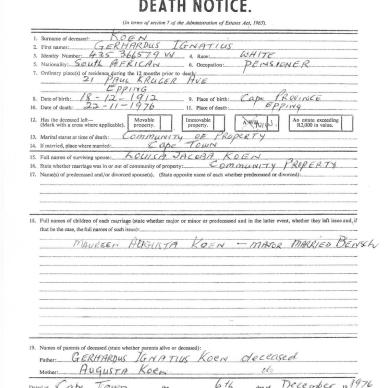 DEATH NOTICE.
(In terms of section 7 of the Administration of Estates Act, 1965).
1. Surname of deceased: KOEN
2. First names: GERHARDUS IGNATIUS
3. Identity Number: 435 366579 W 4. Race: WHITE
5. Nationality: SOUTH AFRICAN 6. Occupation: PENSIONER
7. Ordinary place(s) of residence during the 12 months prior to death:
21 PAUL KRUGER AVE
EPPING
8. Date of birth: 18-12-1912 9. Place of birth: CAPE PROVINCE
10. Date of death: 22-11-1976 11. Place of death: EPPING
12. Has the deceased left— (Mark with a cross where applicable). Movable property. Immovable property. An estate exceeding R2,000 in value.
13. Marital status at time of death: COMMUNITY OF PROPERTY
14. If married, place where married: CAPE TOWN
15. Full names of surviving spouse: LOUISA JACOBA KOEN
16. State whether marriage was in or out of community of property: COMMUNITY PROPERTY
17. Name(s) of predeceased and/or divorced spouse(s). (State opposite name of each whether predeceased or divorced).
18. Full names of children of each marriage (state whether major or minor or predeceased and in the latter event, whether they left issue and, if
that be the case, the full names of such issue):
MAUREEN AUGUSTA KOEN – MAJOR MARRIED
19. Names of parents of deceased (state whether parents alive or deceased):
Father: GERHARDUS IGNATIUS KOEN deceased
Mother: AUGUSTA KOEN do
CAPE TOWN 6th December 1976